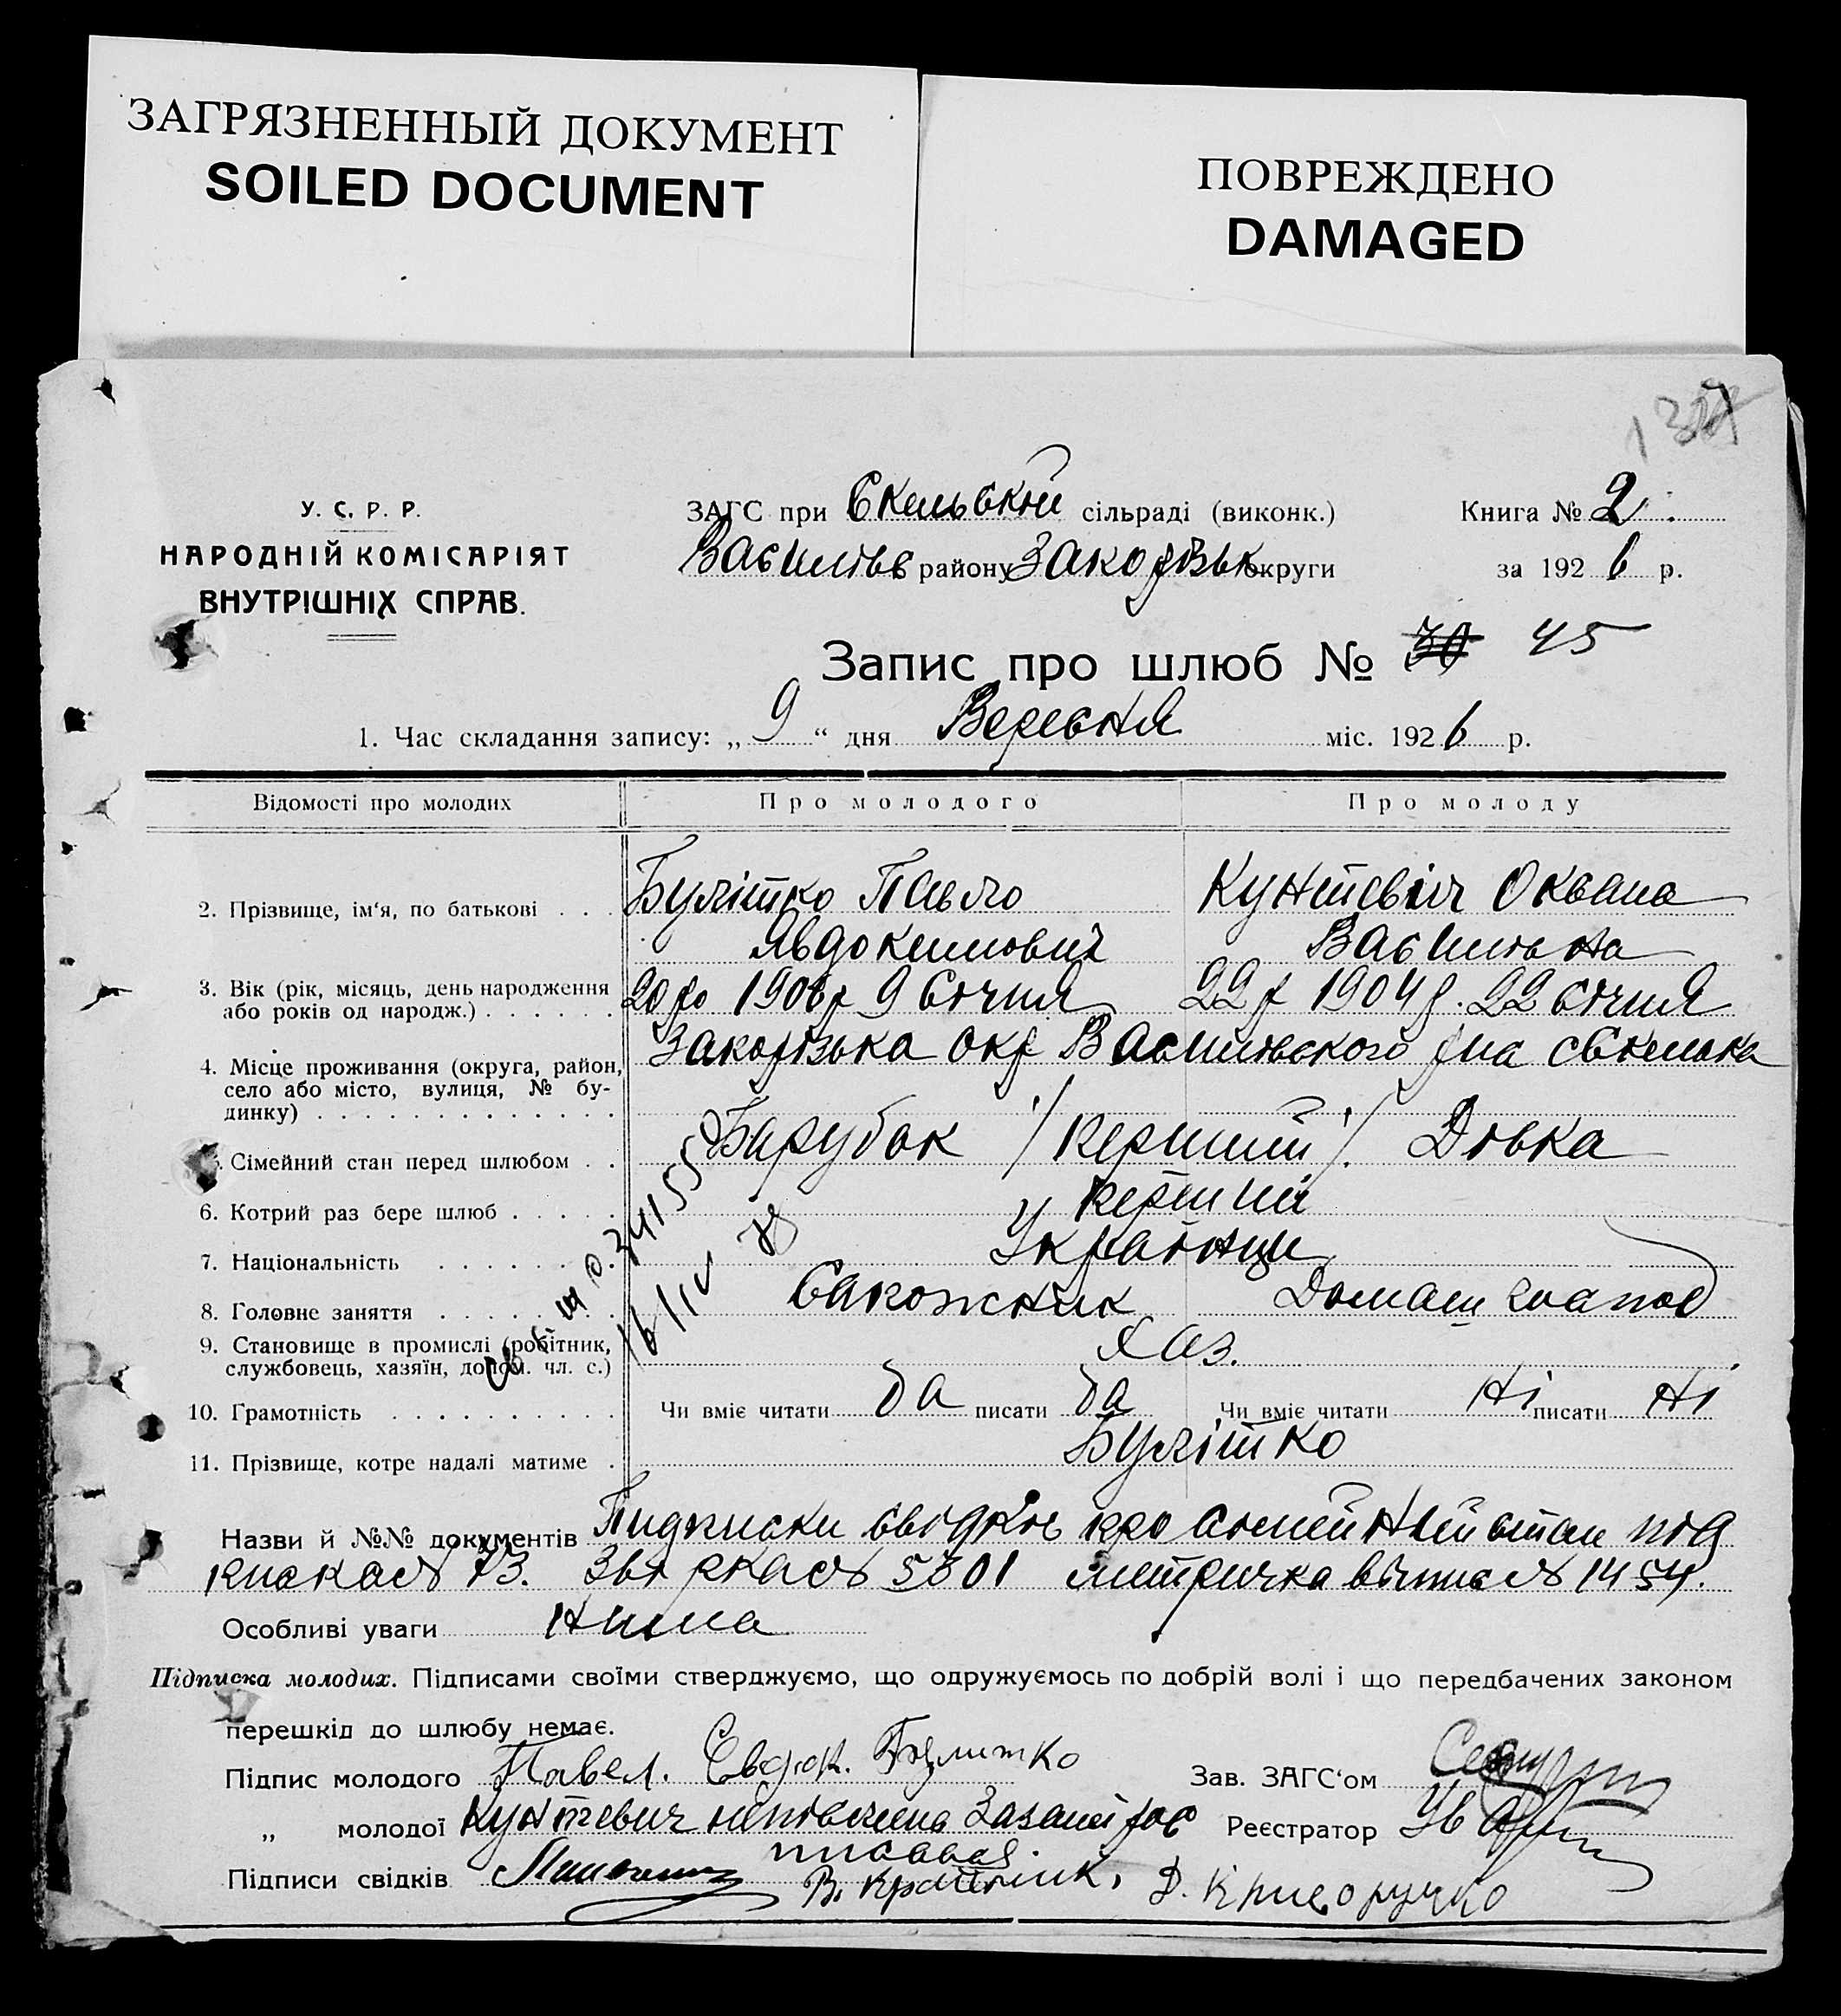 ЗАГРЯЗНЕННЫЙ ДОКУМЕНТ
SOILED DOCUMENT
ПОВРЕЖДЕНО
DAMAGED
У. С. Р. Р.
НАРОДНІЙ КОМІСАРІЯТ
ВНУТРІШНІХ СПРАВ.
ЗАГС при Скельській сільраді (виконк.)
Книга № 2
Василівс району Запоріжськ округи
за 1926 р.
Запис про шлюб № 30 45
1. Час складання запису: „ 9 “ дня Вересня міс. 1926 р.
Відомості про молодих Про молодого Про молоду
2. Прізвище, ім‘я, по батькові . . . Булітко Павло Кунтевіч Оксана
Явдокимович Василівна
3. Вік (рік, місяць, день народження 20 ро 1906 р 9 Січня 22 р 1904 р. 22 січня
або років од народж.) . . . . . .
4. Місце проживання (округа, район, Запорізька окр Василівського р на с Скелька
село або місто, вулиця, № бу-
динку) . . . . . . . . . . . . .
5. Сімейний стан перед шлюбом . . Парубок / перший /. Дівка
6. Котрий раз бере шлюб . . . . . перший
7. Національність . . . . . . . . Українци
8. Головне заняття . . . . . . . . Сапожник Домаш
9. Становище в промислі (робітник, Хаз.
службовець, хазяїн, допом. чл. с.)
34155
16/IV
10. Грамотність . . . . . . . . . . Чи вміє читати да писати да Чи вміє читати Ні писати Ні
11. Прізвище, котре надалі матиме . Булітко
Назви й №№ документів Пидписки свідків про сімейний стан під
писка № 73. № 5301 метричка № 1454.
Особливі уваги Нима
Підписка молодих. Підписами своїми стверджуємо, що одружуємось по добрій волі і що передбачених законом
перешкід до шлюбу немає.
Підпис молодого Павел. Евдок. Булитко Зав. ЗАГС‘ом
„ молодої Кунтевич Реєстратор
Підписи свідків Д. Криворучко